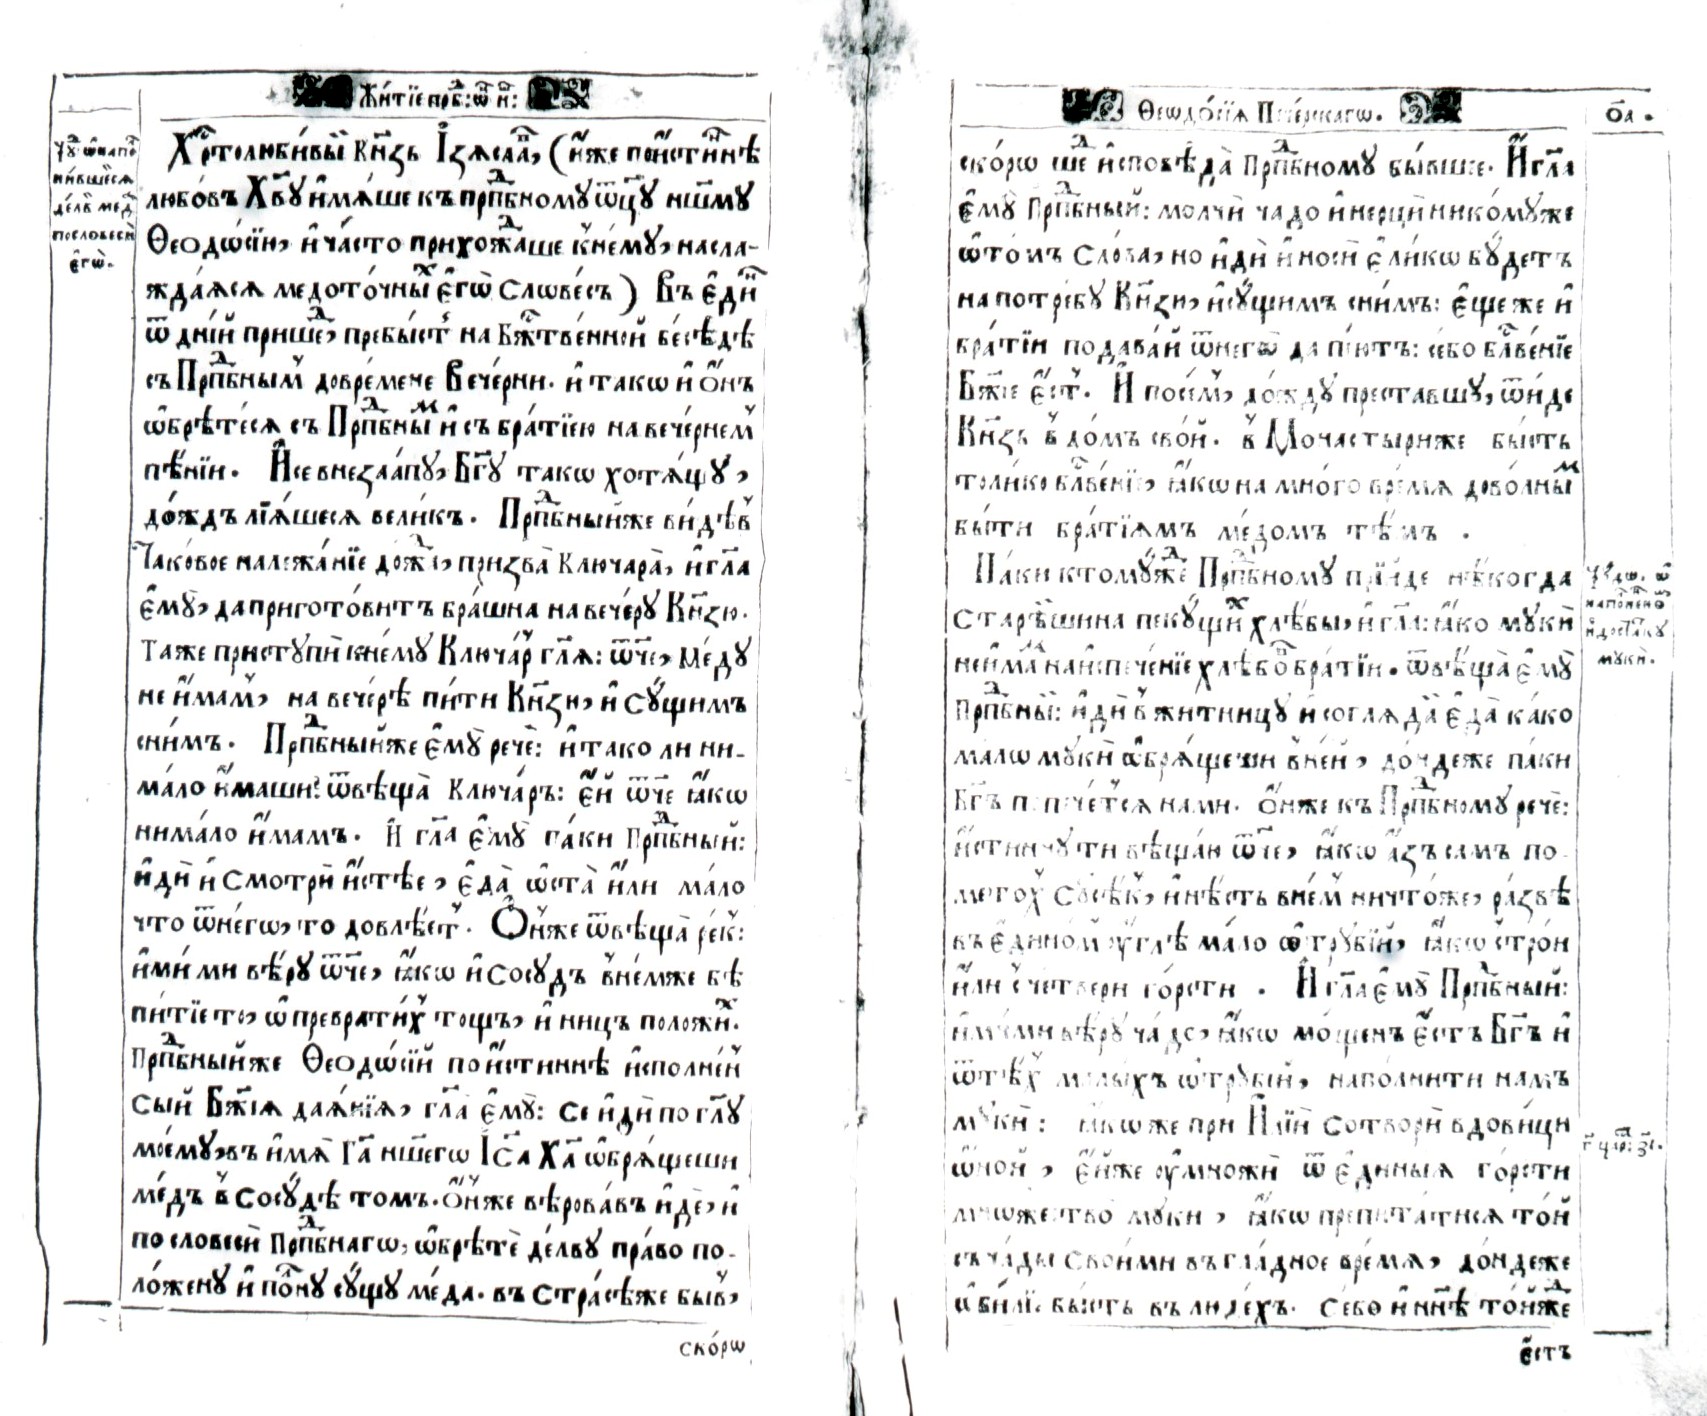 Житїе прпⷣб: ѿц҃ъ н҃:
Хрⷭ҇толюби́вый Кн҃зь І҆зѧсла́в, (и҆́же пои́стиннѣ
любо́въ Хв҃у и҆мѧ́ше къ прпⷣбному ѿц҃у нш҃му
Ѳеодѡ́сїи, и҆ ча́сто прихожⷣа́ше к̾не́му, насла-
жда́ѧсѧ медото́чныⷯ є҆гѡ̀ слѡве́съ) Въ є҆ди́нъ
ѿ дні́й прише́ⷣ, пребы́стъ на Бжⷭ҇тве́нной бесѣ́дѣ
съ Прпⷣбнымъ довре́мене Вече́рни. и҆ такѡ и҆ ѻ҆́нъ
ѡ҆брѣ́тесѧ съ Прпⷣбныⷨ и҆ съ бра́тїею на вече́рнемъ
пѣ́нїи. И҆ се внеза́апу, Бг҃у такѡ хотѧ́щу,
до́ждъ лїѧ́шесѧ вели́къ. Прпⷣбныйже ви́дѣвъ
Таково́е належа́нїе дожⷣа̀, призва̀ Ключарѧ̀, и҆ гл҃а
є҆мꙋ̀, да пригото́витъ бра́шна на вече́рꙋ Кн҃зю.
Таже пристꙋпѝ кне́мꙋ Ключа́р гл҃ѧ: ѿч҃е, ме́дꙋ
не и҆́мамъ, на вече́рѣ пи́ти Кн҃зи, и҆ сꙋ́щимъ
сни́мъ. Прпⷣбныйже є҆мꙋ̀ речѐ: и҆ тако ли ни-
ма́ло и҆́маши? ѿвѣща̀ Ключа́ръ: є҆́й ѿч҃е ꙗ҆́кѡ
нима́ло и҆́мамъ. И҆ гл҃а є҆мꙋ̀ па́ки Прпⷣбный:
и҆дѝ и҆ смотрѝ и҆́стѣе, є҆да̀ ѡ҆ста̀ и҆́ли ма́ло
что ѿ него̀, то довлѣ́етъ. Ѻ҆́нже ѿвѣща̀ ре́к:
и҆ми́ ми вѣ́рꙋ ѿч҃е, ꙗ҆́кѡ и҆ сосꙋ́дъ в̾не́мже бѣ
пи́тїе то, ѡ҆превратиⷯ тощъ, и҆ ницъ положиⷯ.
Прпⷣбныйже Ѳеодѡ́сїй пои́стиннѣ и҆спо́лнен
сый Бж҃їѧ даѧ́нїѧ, гл҃а є҆мꙋ̀: се и҆дѝ по гл҃ꙋ
мое́мꙋ, въ и҆́мѧ Гд҃а нш҃егѡ І҆с҃а Хр҃та ѡ҆брѧ́щеши
ме́дъ в̾ сосꙋ́дѣ томъ. Ѻ҆́нже вѣ́ровавъ и҆́де, и҆
по словесѝ Прпⷣбнагѡ, ѡ҆брѣтѐ де́лвꙋ пра́во по-
ло́женꙋ и҆ по́лнꙋ сꙋ́щꙋ ме́да. въ стра́сѣже бы́въ,
ско́рѡ
Чꙋⷣ: ѡ҆ напо
ни́вшеесѧ
де́лвѣ меⷣ
по словесѝ
є҆гѡ̀.
Ѳеодо́сїѧ Пече́рскагѡ.
о҃а.
ско́рѡ шеⷣ и҆сповѣ́да Прпⷣбномꙋ бы́вшее. И҆ гл҃а
є҆мꙋ̀ Прпⷣбный: молчѝ чадо и҆ нерцѝ нико́мꙋже
ѡ҆ то́мъ сло́ва, но и҆дѝ и҆ носѝ є҆ли́кѡ бꙋ́детъ
на потре́бꙋ Кн҃зи, и҆ сꙋ́щимъ сни́мъ: є҆ще́же и҆
бра́тїи подава́й ѿ него̀ да пїю́тъ: се бо блⷭ҇ве́нїе
Бж҃їе є҆́стъ. И҆ посе́мъ, до́ждꙋ преставшꙋ, ѿи́де
Кн҃зь в̾ до́мъ сво́й. в̾ Монастыриже бы́сть
толи́ко блⷭ҇ве́нїе, ꙗ҆́кѡ на мно́го вре́мѧ дово́лныⷨ
бы́ти бра́тїѧмъ ме́домъ тѣ́мъ.
Па́ки ктомꙋ́же Прпⷣбномꙋ прїи́де нѣ́когда
Старѣ́йшина пекꙋ́щиⷯ хлѣ́бы, и҆ гл҃а: ꙗ҆́ко мꙋкѝ
неи́мамъ на и҆спече́нїе хлѣ́бовъ бра́тїи. ѿвѣща̀ є҆мꙋ̀
Прпⷣбный: и҆дѝ в̾ жи́тницꙋ и҆ согла́дай є҆да̀ ка́ко
ма́лѡ мꙋкѝ ѡ҆брѧ́щеши в̾не́й, до́ндеже па́ки
Бг҃ъ попече́тсѧ на́ми. Ѻ҆́нже къ Прпⷣбномꙋ речѐ:
и҆́стиннꙋ ти вѣща́ю ѿч҃е, ꙗ҆́кѡ а҆́зъ самъ по-
мето́хъ сꙋсѣ́къ, и҆ нѣ́сть в̾не́мъ ничто́же, ра́звѣ
въ є҆ди́номъ ᲂу҆́глѣ ма́ло ѡ҆трꙋбі́й, ꙗ҆́кѡ с̾трои
и҆́ли с̾че́твери го́рсти. И҆ гл҃а є҆мꙋ̀ Прпⷣбный:
и҆ми́ми вѣ́рꙋ ча́до, ꙗ҆́кѡ мо́щенъ є҆́стъ Бг҃ъ и҆
ѿ тѣ́хъ ма́лыхъ ѡ҆трꙋбі́й, напо́лнити намъ
мꙋкѝ: ꙗ҆́коже при И҆лїѝ сотворѝ вдови́ци
ѻ҆́ной, є҆́йже ᲂу҆мно́жи ѿ є҆ди́ныѧ го́рсти
мно́жество мꙋки, ꙗ҆́кѡ препита́тисѧ то́й
съ ча́ды свои́ми въ гла́дное вре́мѧ, до́ндеже
ѡ҆би́лїе бы́сть въ лю́дехъ. Се́бо и҆ нн҃ѣ то́йжⷣе
є҆́стъ
Чꙋ́дѡ. ѡ҆
наполне́нїи
недоста́кꙋ
мꙋкѝ.
г҃ Црⷭ҇: з҃і.